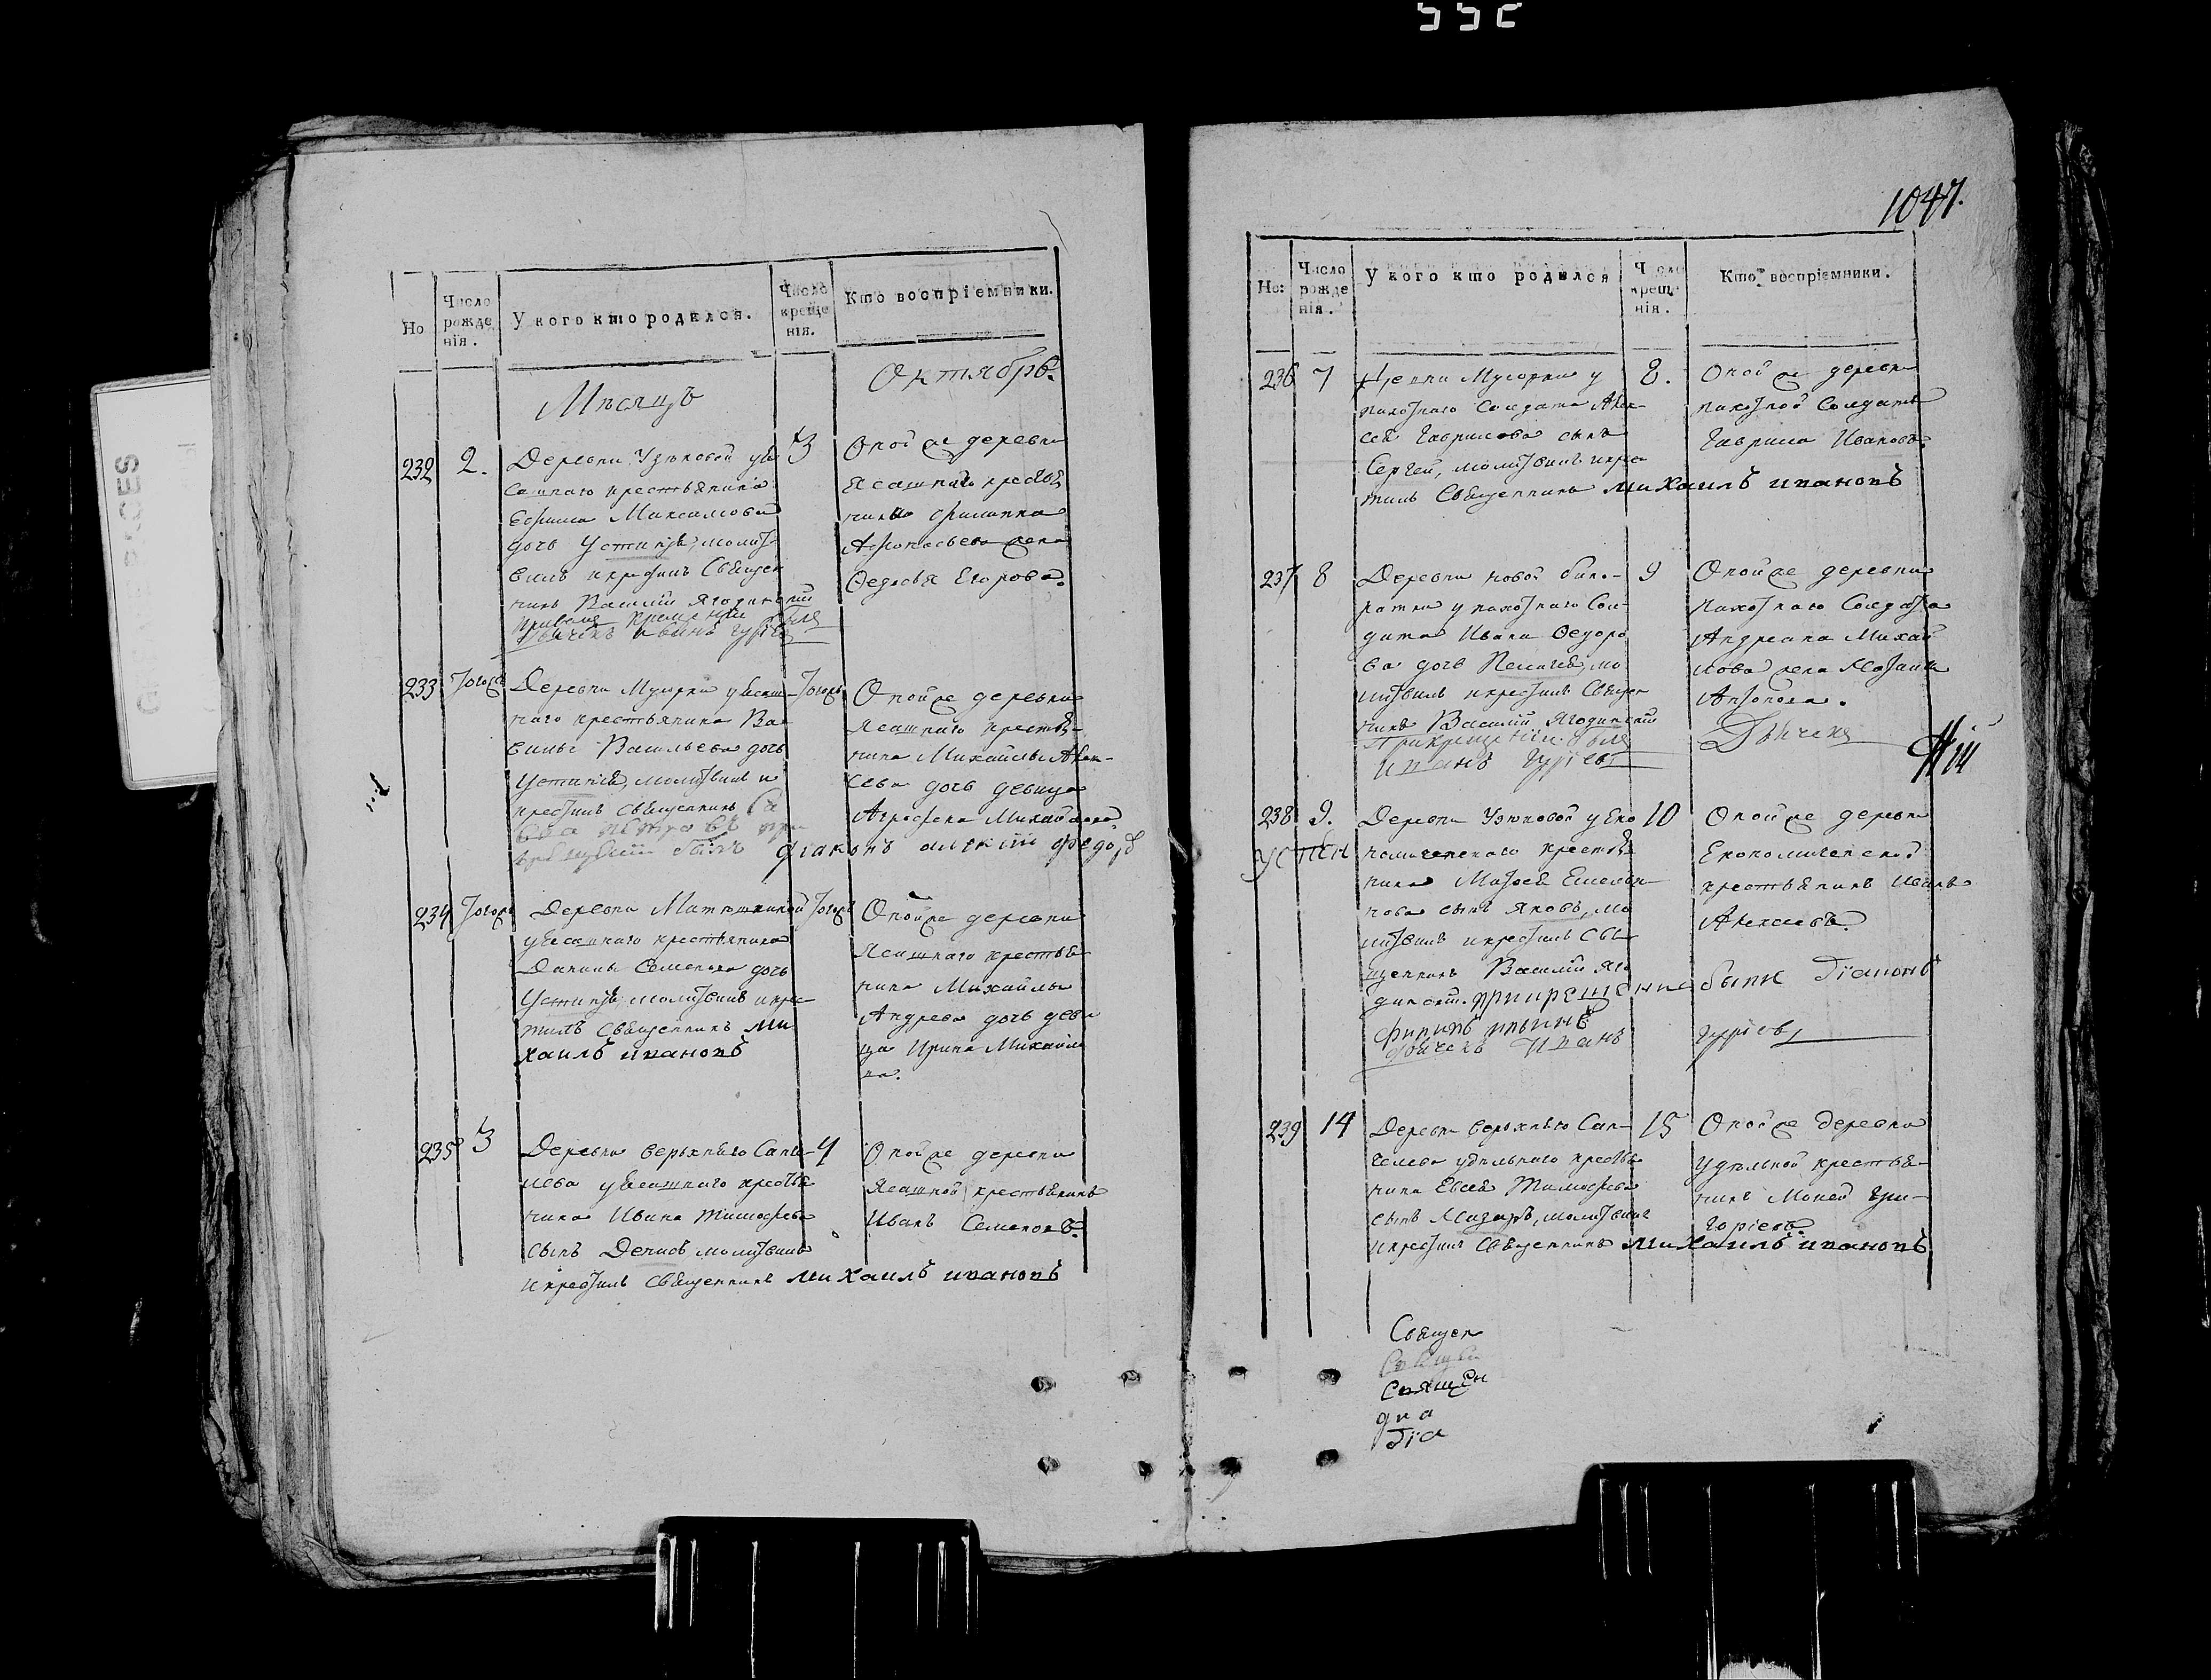 1047.
Но
Число рожде нія.
У кого кто родился.
Число креще нія.
Кто воспріемники.
Мѣсяцъ
Октябрь.
232
2.
Деревни Узюковой у Яс
сашнаго крестьянина
Ефима Максимова
дочь Устинія, молит
вилъ и крестилъ Священ
никъ Василий Ягодинский
3
Оной же деревни
Ясашнаго крестья
нина Филиппа
Афонасьева жена
Федосья Егорова.
233
Тогожъ
Деревни Мусорки у Ясаш
наго крестьянина
Васильева дочь
Устинія, молитвилъ и
крестилъ священникъ
Тогожъ
Оной же деревни
Ясашнаго крестья
нина Михайлы Алек
сева дочь девица
Агрофена Михайлова
діаконъ алекiй федор
234
Тогожъ
Деревни Матюшкиной
у Ясашнаго крестьянина
Данилы Семенова дочь
Устинія, молитвилъ и кре
тилъ священникъ Ми
хаилъ ивановъ
Тогожъ
Оной же деревни
Ясашнаго крестья
нина Михайлы
Андрева дочь деви
ца Ирина Михайло
ва.
235
3
Деревни верхняго Санче
лева у Ясашнаго крестья
нина Ивана Тимофева
сынъ Денисъ молитвилъ
и крестилъ священникъ Михаилъ ивановъ
4
Оной же деревни
Ясашной крестьянинъ
Иванъ Семеновъ.
Но:
Число рожде нія.
У кого кто родился
Число креще нія.
Кто воспріемники.
236
7
Деревни Мусорки у
пахотнаго Солдата Алек
сея Гаврилова сынъ
Сергей, молитвилъ и кре
тилъ Священникъ Михаилъ ивановъ
8.
Оной же деревни
пахотной Солдатъ
Гаврила Ивановъ.
237
8
Деревни новой бина
ратки у пахотнаго Сол
дата Ивана Федоро
ва дочь Пелагея, мо
литвилъ и крестилъ Священ
никъ Василий Ягодинский
При крещении былъ
иванъ гурiевъ
9
Оной же деревни
пахотнаго Солдата
Андреяна Михай
лова жена
Антонова.
Дьячекъ
238
9.
Деревни Узюковой у Еко
номическаго крестья
нина Матвея Емелья
нова сынъ Яковъ, мо
литвилъ и крестилъ Свя
щенникъ Василий Яго
динскій. при крещении были діаконъ
филипъ ильинъ
дьячекъ Иванъ гурiевъ
10
Оной же деревни
Економической
крестьянинъ Иванъ
Алексеевъ.
239
14
Деревни верхняго Сан
челева удельнаго крестья
нина Евсея Тимофева
сынъ Лазарь, молитвилъ
и крестилъ Священникъ Михаилъ ивановъ
15
Оной же деревни
Удельной крестья
нинъ Мокей Гри
горiевъ.
Священ
Священ
Священ
дья
Діа